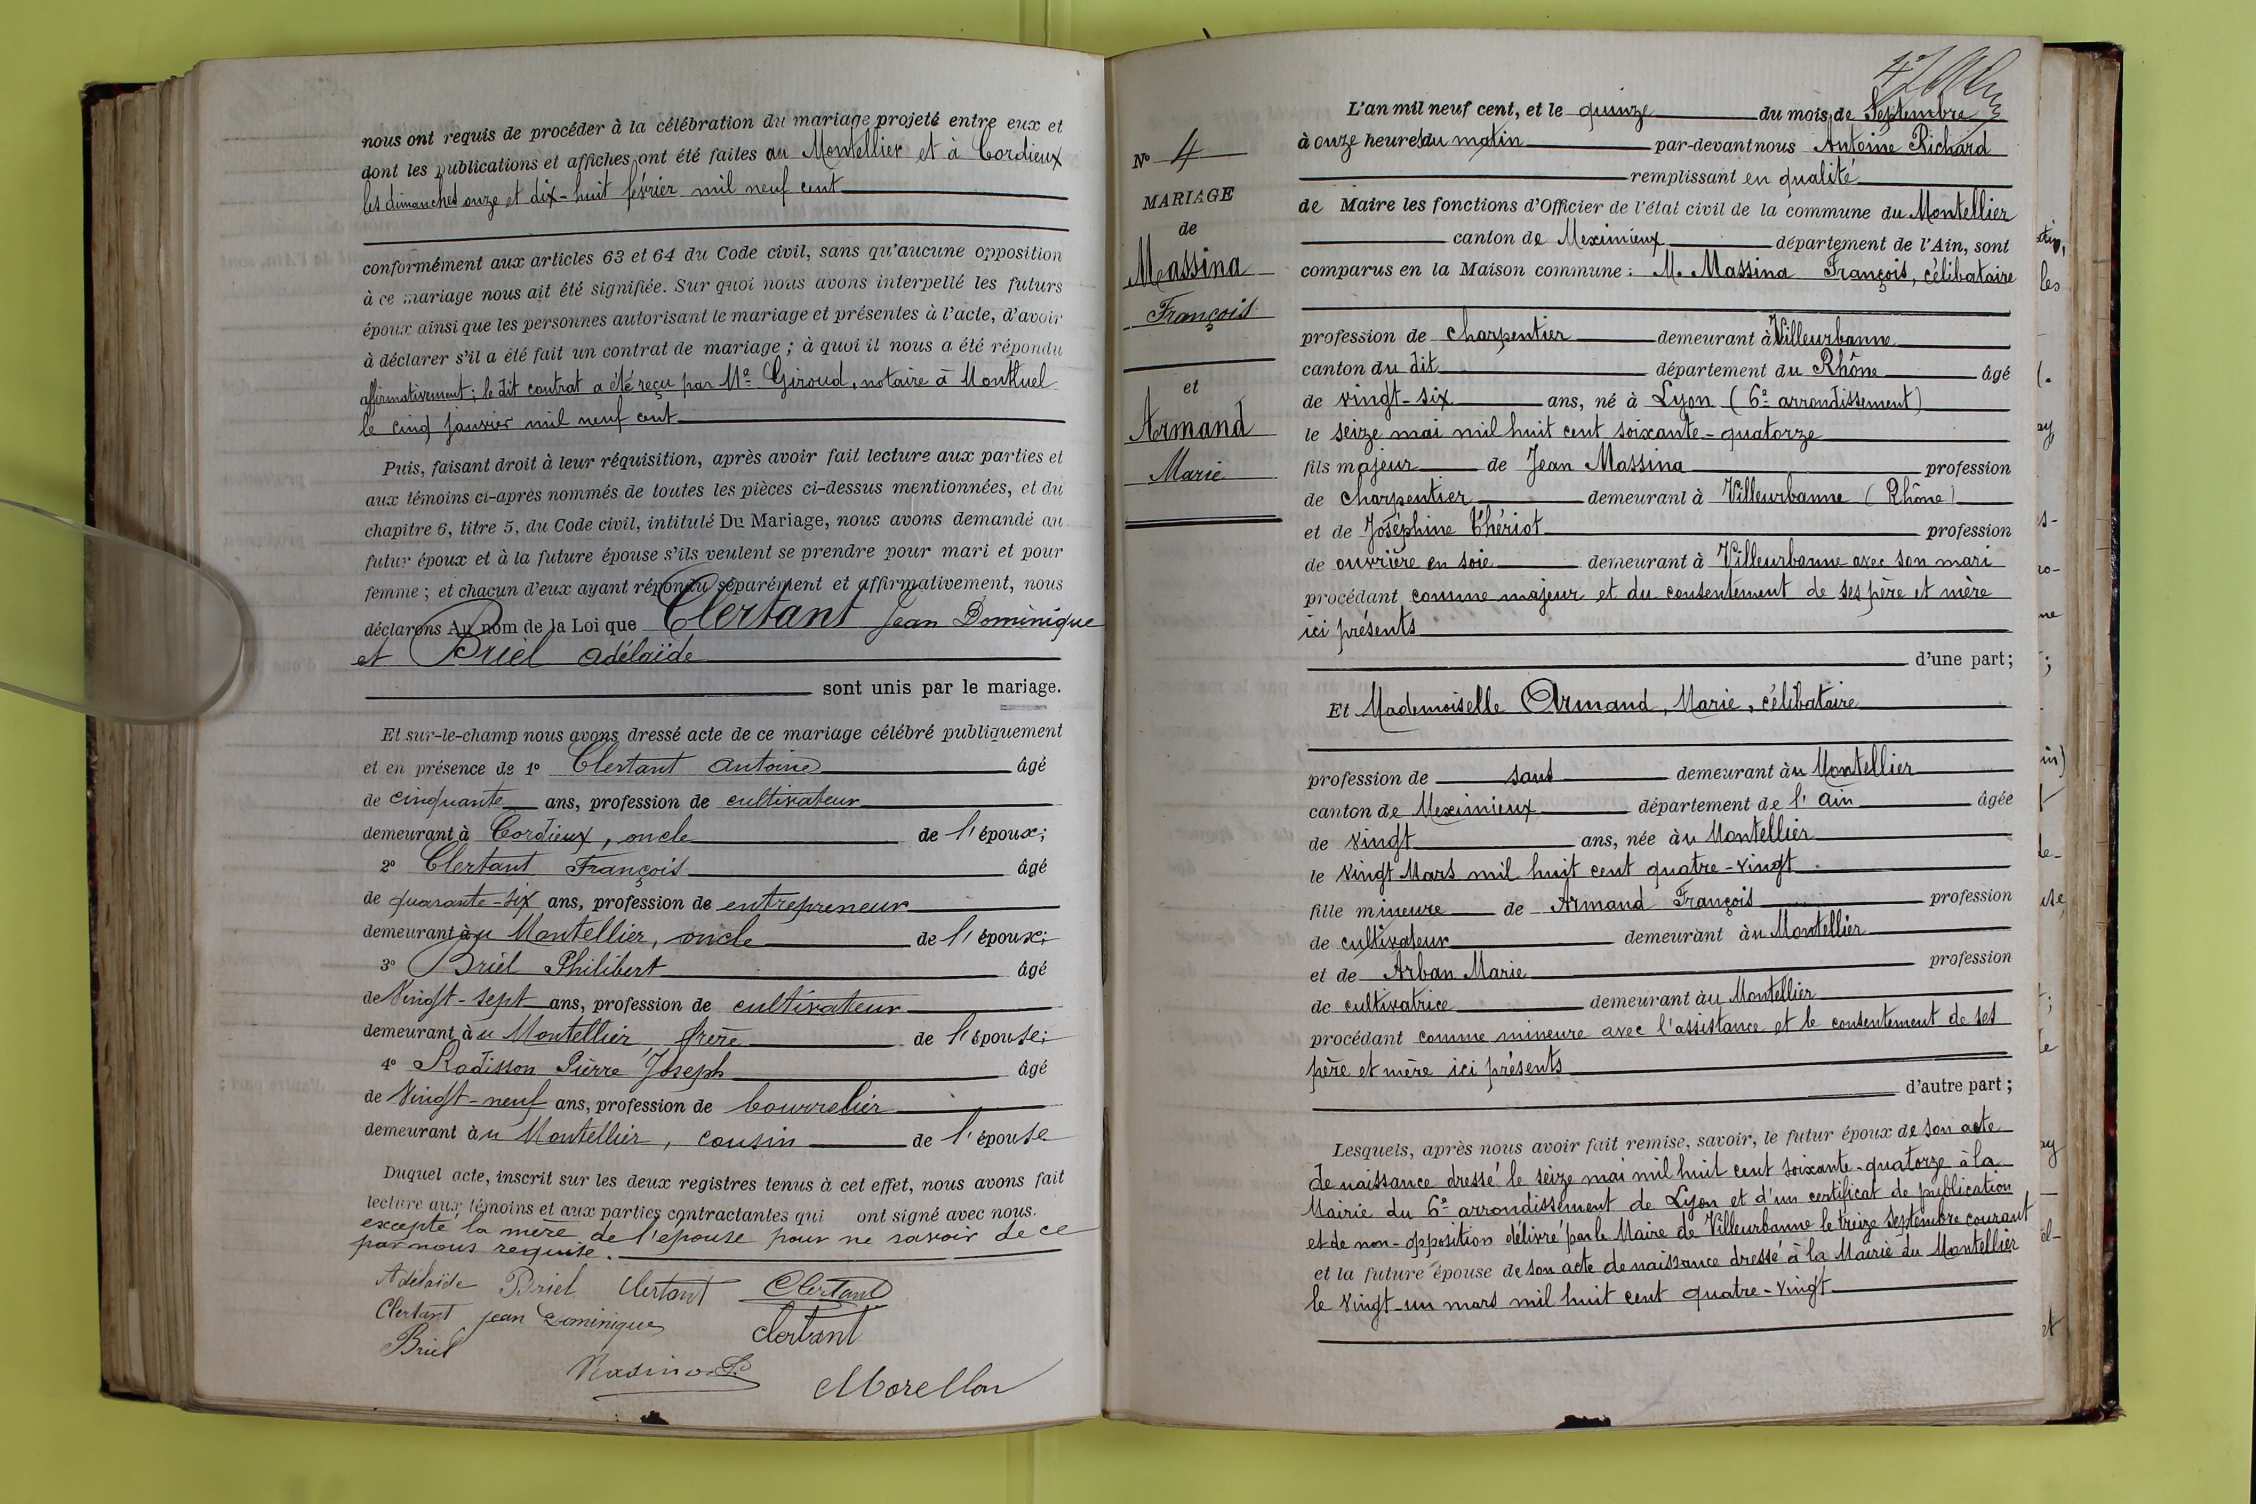 nous ont requis de procéder à la célébration du mariage projeté entre eux et
dont les publications et affiches ont été faites au Montellier et à Cordieux
les dimanches onze et dix-huit février mil neuf cent
conformément aux articles 63 et 64 du Code civil, sans qu'aucune opposition
à ce mariage nous ait été signifiée. Sur quoi nous avons interpellé les futurs
époux ainsi que les personnes autorisant le mariage et présentes à l'acte, d'avoir
à déclarer s'il a été fait un contrat de mariage ; à quoi il nous a été répondu
affirmativement ; le dit contrat a été reçu par Me Giroud, notaire à Montluel
le cinq janvier mil neuf cent
Puis, faisant droit à leur réquisition, après avoir fait lecture aux parties et
aux témoins ci-après nommés de toutes les pièces ci-dessus mentionnées, et du
chapitre 6, titre 5, du Code civil, intitulé Du Mariage, nous avons demandé au
futur époux et à la future épouse s'ils veulent se prendre pour mari et pour
femme ; et chacun d'eux ayant répondu séparément et affirmativement, nous
déclarons Au nom de la Loi que Clertant Jean Dominique
et Briel Adélaïde
sont unis par le mariage.
Et sur-le-champ nous avons dressé acte de ce mariage célébré publiquement
et en présence de 1° Clertant Antoine âgé
de cinquante ans, profession de cultivateur
demeurant à Cordieux, oncle de l'époux;
2° Clertant François âgé
de quarante-six ans, profession de entrepreneur
demeurant au Montellier, oncle de l'époux;
3° Briel Philibert âgé
de vingt-sept ans, profession de cultivateur
demeurant au Montellier, frère de l'épouse;
4° Rodisson Pierre Joseph âgé
de vingt-neuf ans, profession de bourrelier
demeurant au Montellier, cousin de l'épouse
Duquel acte, inscrit sur les deux registres tenus à cet effet, nous avons fait
lecture aux témoins et aux parties contractantes qui ont signé avec nous.
excepté la mère de l'épouse pour ne savoir de ce
par nous requise.
Adélaïde Briel Clertant Clertant
Clertant jean Dominique Clertant
Briel
Morellon
N° 4
MARIAGE
de
Massina
François
et
Armand
Marie
L'an mil neuf cent, et le quinze du mois de Septembre
à onze heures du matin par-devant nous Antoine Richard
remplissant en qualité
de Maire les fonctions d'Officier de l'état civil de la commune du Montellier
canton de Meximieux département de l'Ain, sont
comparus en la Maison commune : M. Massina François, célibataire
profession de charpentier demeurant à Villeurbanne
canton du dit département du Rhône âgé
de vingt-six ans, né à Lyon (6e arrondissement)
le seize mai mil huit cent soixante-quatorze
fils majeur de Jean Massina profession
de charpentier demeurant à Villeurbanne (Rhône)
et de Joséphine Thériot profession
de ouvrière en soie demeurant à Villeurbanne avec son mari
procédant comme majeur et du consentement de ses père et mère
ici présents
d'une part ;
Et Mademoiselle Armand, Marie, célibataire
profession de sans demeurant au Montellier
canton de Meximieux département de l'Ain âgée
de vingt ans, née au Montellier
le vingt Mars mil huit cent quatre-vingt
fille mineure de Armand François profession
de cultivateur demeurant au Montellier
et de Arban Marie profession
de cultivatrice demeurant au Montellier
procédant comme mineure avec l'assistance et le consentement de ses
père et mère ici présents
d'autre part ;
Lesquels, après nous avoir fait remise, savoir, le futur époux de son acte
de naissance dressé le seize mai mil huit cent soixante-quatorze à la
Mairie du 6e arrondissement de Lyon et d'un certificat de publication
et de non-opposition délivré par le Maire de Villeurbanne le treize septembre courant
et la future épouse de son acte de naissance dressé à la Mairie du Montellier
le vingt-un mars mil huit cent quatre-vingt